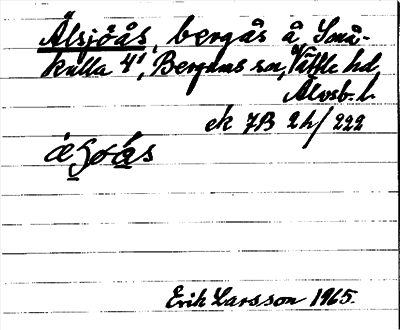 Älsjöås, bergås å Små-
kulla 4¹, Bergums sn, Vättle hd,
Älvsb. l.
ek 7B 2h/222
Erik Larsson 1965.